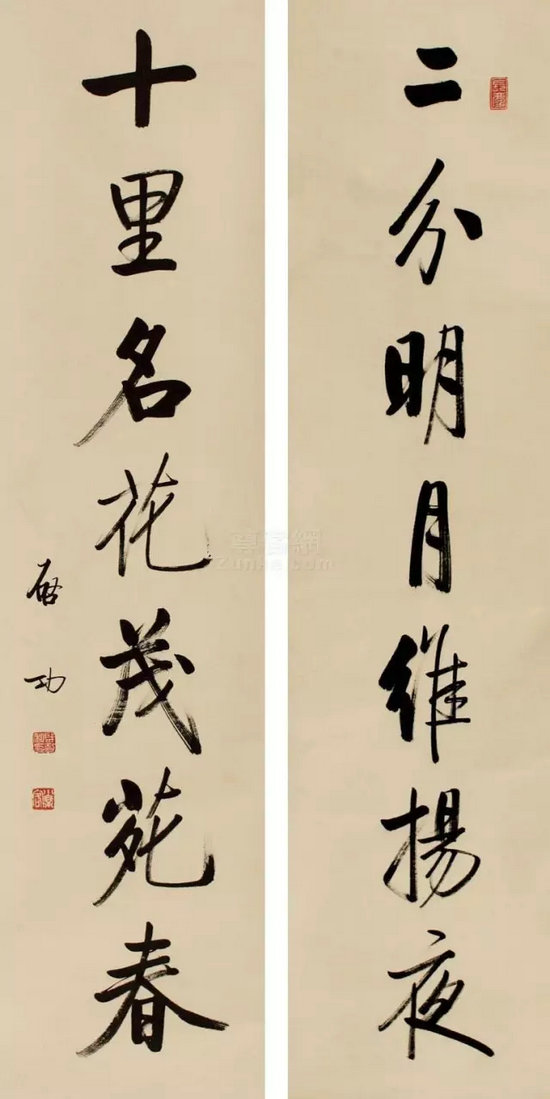 二分明月維揚夜
十里名花茂苑春
啟功
Zunke.com